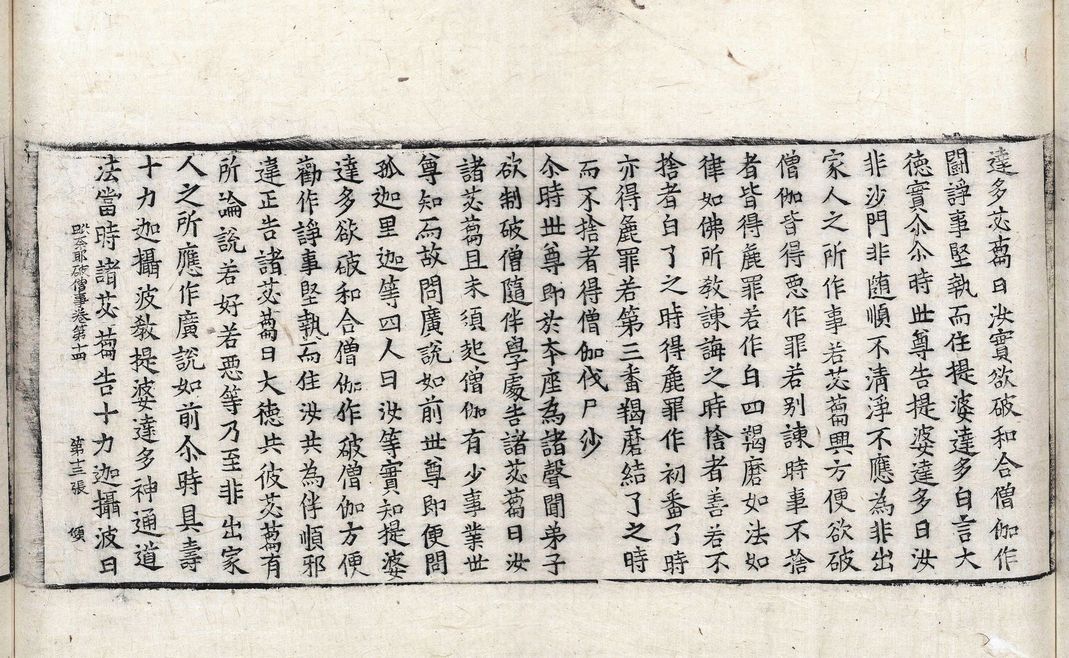 達多苾蒭曰汝實欲破和合僧伽作
闘諍事堅執而住提婆達多白言大
德實尒尒時世尊告提婆達多曰汝
非沙門非随順不清淨不應為非出
家人之所作事若苾蒭興方便欲破
僧伽皆得惡作罪若别諫時事不捨
者皆得麁罪若作白四羯磨如法如
律如佛所教諫誨之時捨者善若不
捨者白了之時得麁罪作初番了時
亦得麁罪若第三番羯磨結了之時
而不捨者得僧伽伐尸沙
尒時世尊即於夲座為諸聲聞弟子
欲制破僧隨伴學處告諸苾蒭曰汝
諸苾蒭且未須起僧伽有少事業世
尊知而故問廣說如前世尊即便問
孤迦里迦等四人曰汝等實知提婆
達多欲破和合僧伽作破僧伽方便
勸作諍事堅執而住汝共為伴順邪
違正告諸苾蒭曰大德共彼苾蒭有
所論說若好若惡等乃至非出家
人之所應作廣說如前尒時具壽
十力迦攝波教提婆達多神通道
法當時諸苾蒭告十力迦攝波曰
毗奈耶破僧事卷第十四 第十三張